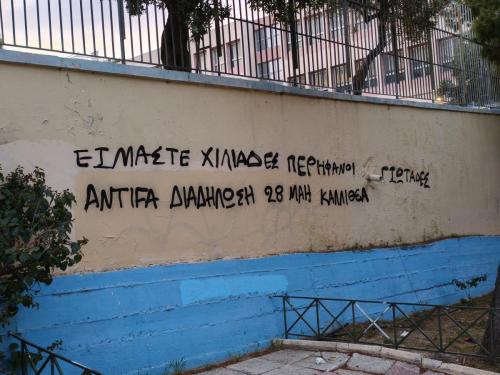 ΕΙΜΑΣΤΕ ΧΙΛΙΑΔΕΣ ΠΕΡΗΦΑΝΟΙ ΓΙΩΤΑΔΕΣ
ΑΝΤΙFΑ ΔΙΑΔΗΛΩΣΗ 28 ΜΑΗ ΚΑΛΛΙΘΕΑ